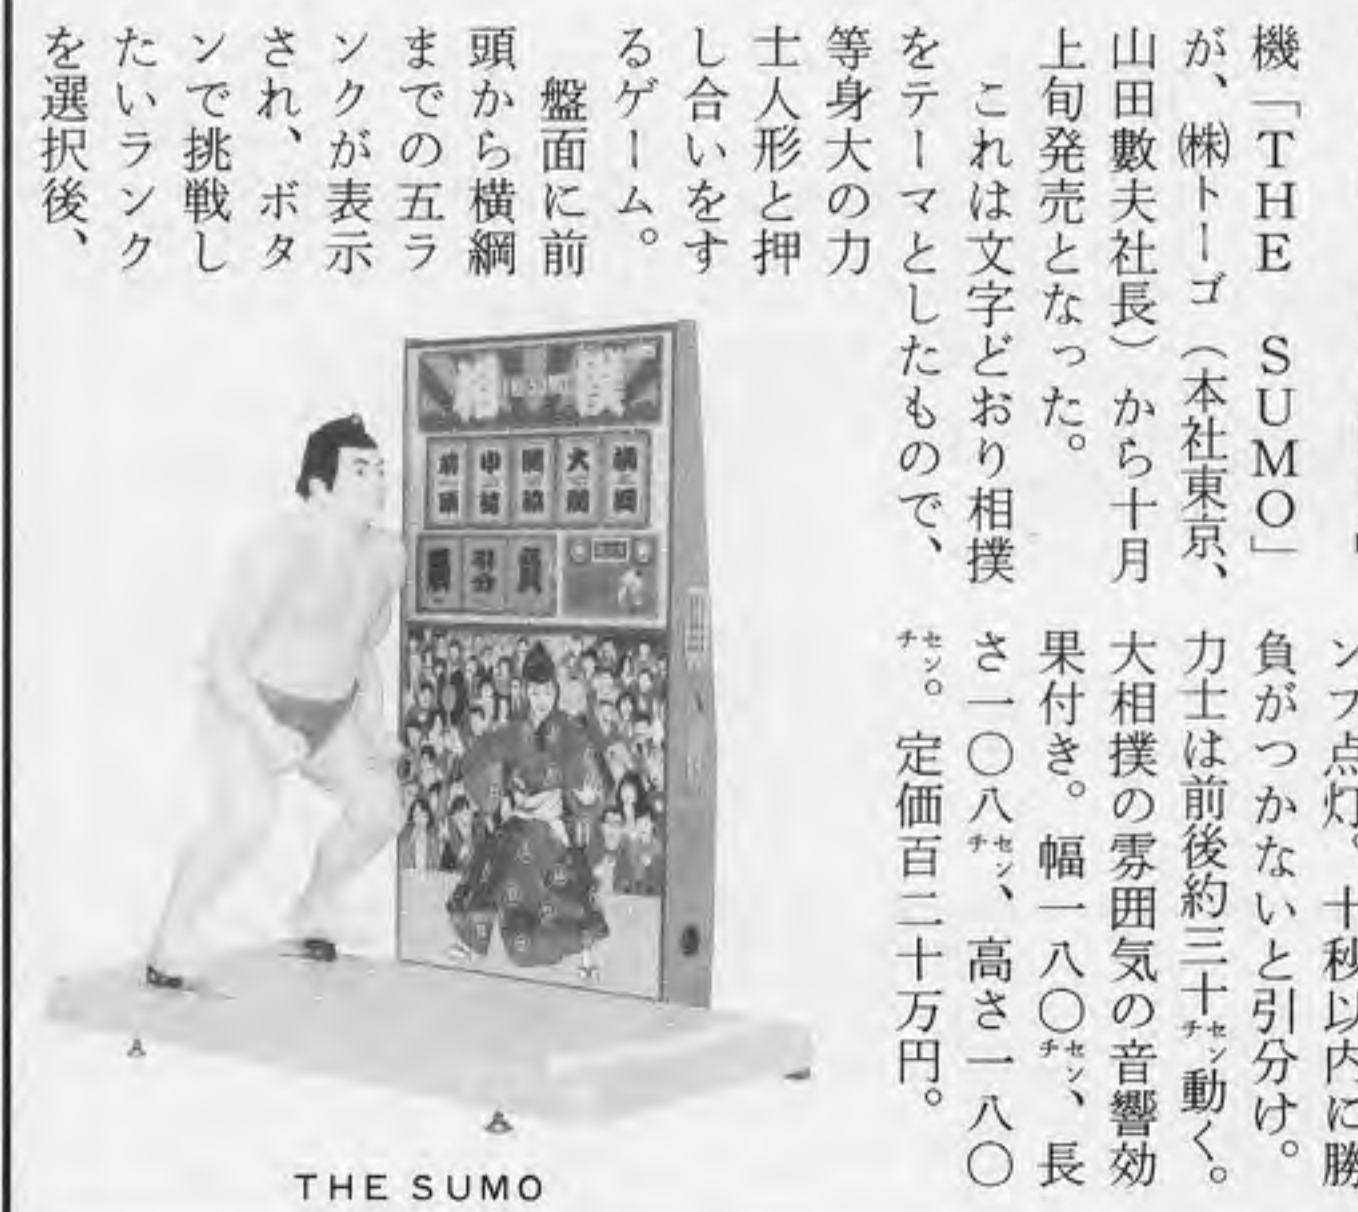 機「THE SUMO」
が、㈱トーゴ（本社東京、
山田數夫社長）から十月
上旬発売となった。
これは文字どおり相撲
をテーマとしたもので、
等身大の力
士人形と押
し合いをす
るゲーム。
盤面に前
頭から横綱
までの五ラ
ンクが表示
され、ボタ
ンで挑戦し
たいランク
を選択後、
ンプ点灯。十秒以内に勝
負がつかないと引分け。
力士は前後約三十センチ動く。
大相撲の雰囲気の音響効
果付き。幅一八〇センチ、長
さ一〇八センチ、高さ一八〇
センチ。定価百二十万円。
相 THE SUMO 撲
前頭 小結 関脇 大関 横綱
引分
THE SUMO